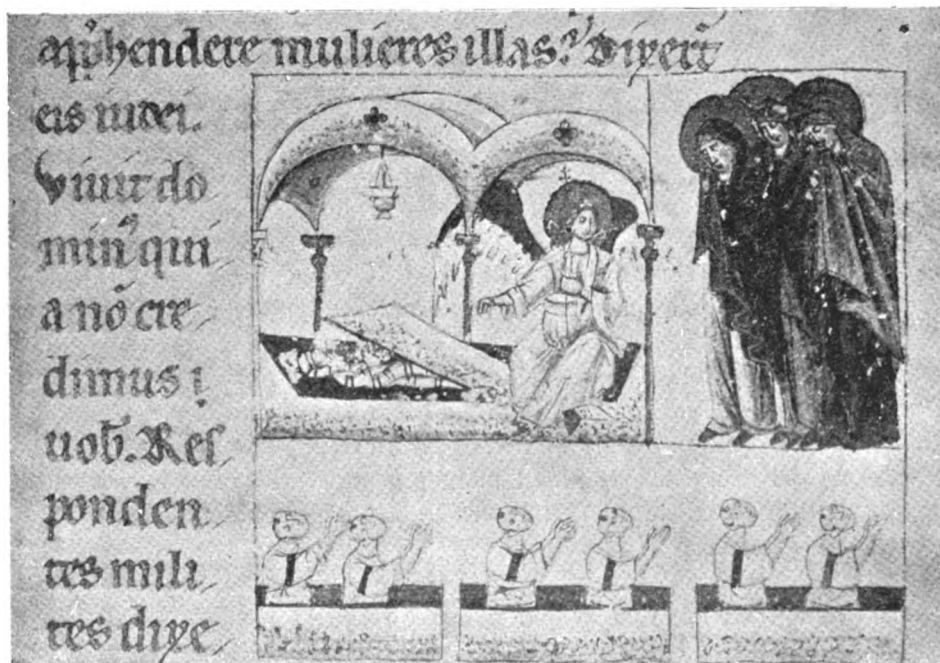 app̃hendere mulieres illas.ˀ Dixer̃t
eis iudei.
Viuit do
min⁹ qui
a nõ cre
dimus i
uob̃. Res
ponden
tes mili
tes dixe